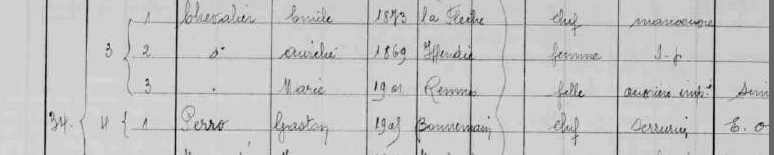 1 Chevalier Emile 1873 la Flèche chef manoeuvre
3 2 d° Aurélie 1869 Iffendic femme s-p
3 . Marie 1901 Rennes fille ouvrière imp.
34 4 1 Perro Gaston 1905 Bonnemain chef serrurier E. O